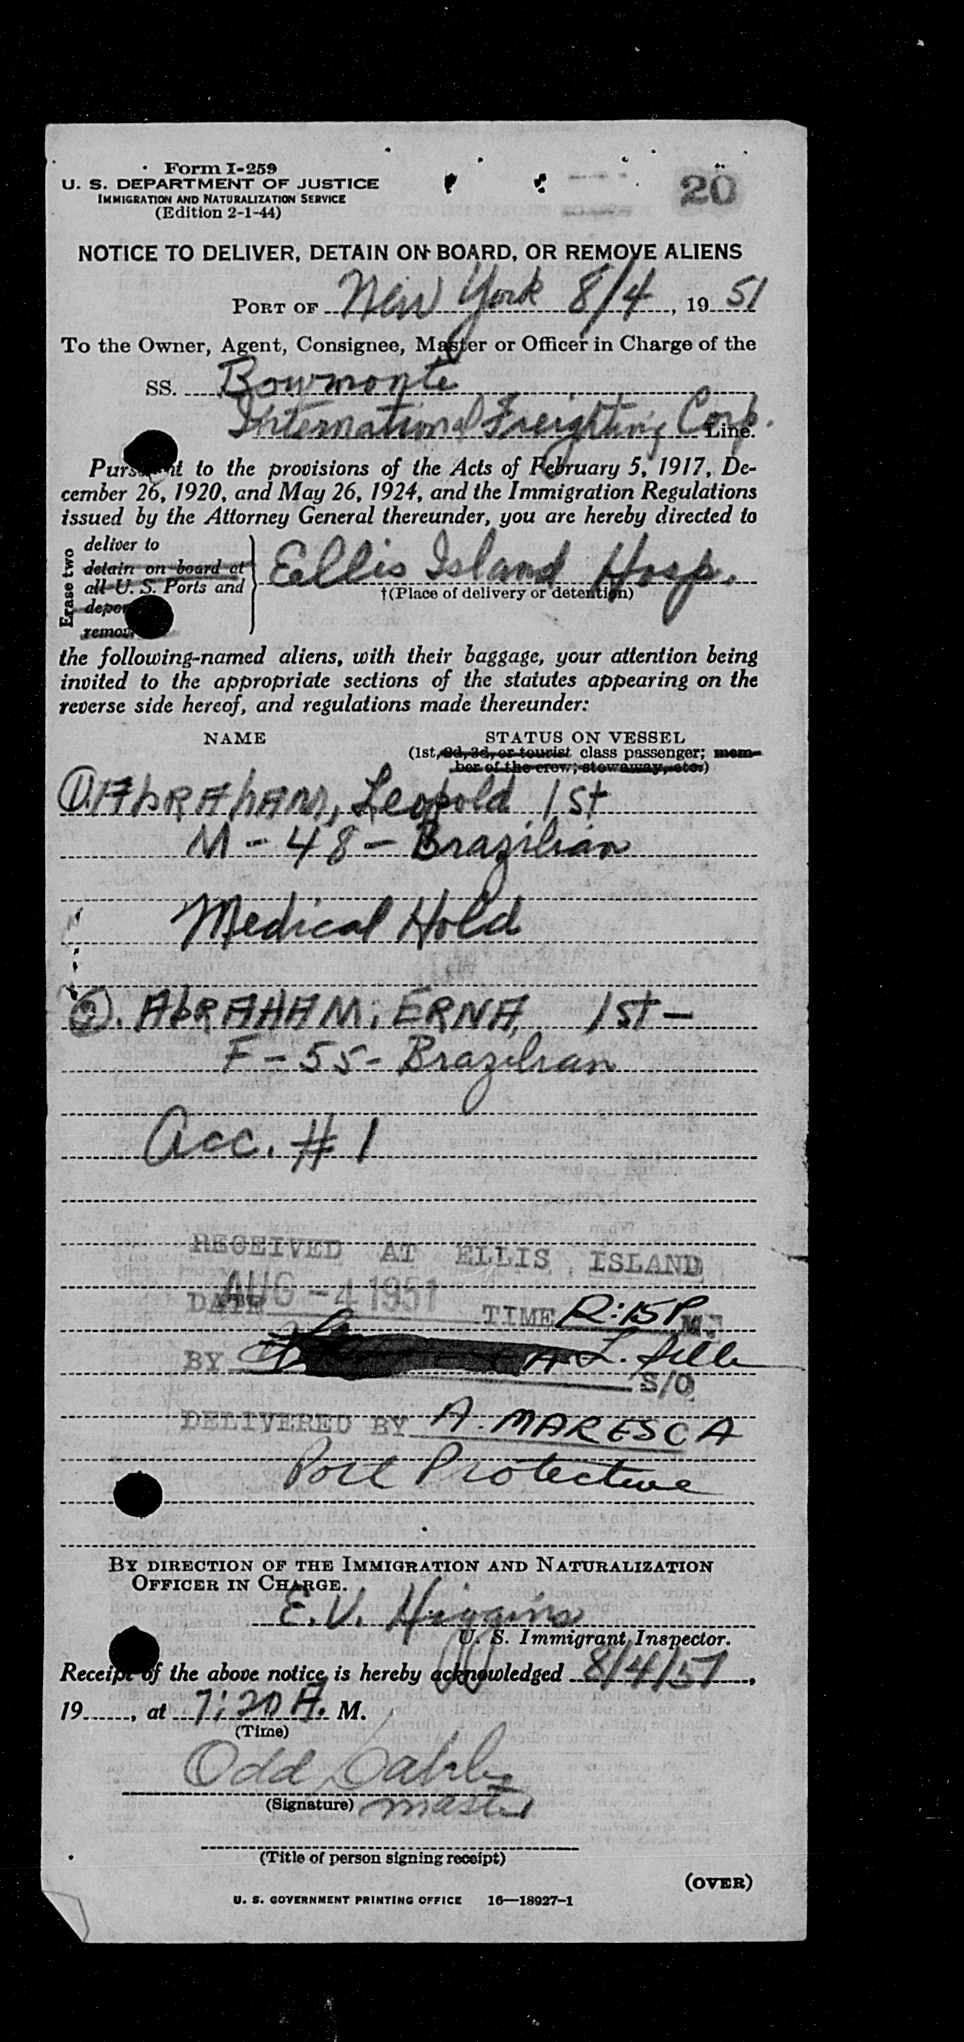 Form I-259
U. S. DEPARTMENT OF JUSTICE
IMMIGRATION AND NATURALIZATION SERVICE
(Edition 2-1-44)
20
NOTICE TO DELIVER, DETAIN ON BOARD, OR REMOVE ALIENS
PORT OF New York 8/4, 19 51
To the Owner, Agent, Consignee, Master or Officer in Charge of the
SS. Bowmonte
International Freighting Corp. Line.
Pursuant to the provisions of the Acts of February 5, 1917, De-
cember 26, 1920, and May 26, 1924, and the Immigration Regulations
issued by the Attorney General thereunder, you are hereby directed to
Erase two
deliver to
detain on board at
all U. S. Ports and
depor
remov
Ellis Island Hosp.
†(Place of delivery or detention)
the following-named aliens, with their baggage, your attention being
invited to the appropriate sections of the statutes appearing on the
reverse side hereof, and regulations made thereunder:
NAME STATUS ON VESSEL
(1st, 2d, 3d, or tourist class passenger; mem-
ber of the crew; stowaway, etc.)
1. ABRAHAM, Leopold 1st
M - 48 - Brazilian
Medical Hold
2. ABRAHAM, ERNA, 1st -
F - 55 - Brazilian
Acc. # 1
RECEIVED AT ELLIS ISLAND
DATE AUG -4 1951 TIME 2:15 P M.
BY
S/O
DELIVERED BY A. MARESCA
Port Protective
BY DIRECTION OF THE IMMIGRATION AND NATURALIZATION
OFFICER IN CHARGE.
E.V. Higgins
U. S. Immigrant Inspector.
Receipt of the above notice is hereby acknowledged 8/4/51,
19......, at 7:20 A. M.
(Time)
Odd
(Signature) master
(Title of person signing receipt)
(OVER)
U. S. GOVERNMENT PRINTING OFFICE 16—18927-1